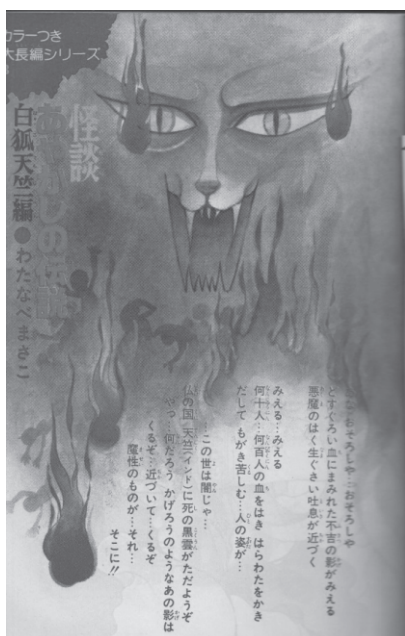 カラーつき
大長編シリーズ
怪談
白狐天竺編●わたなべまさこ
おそろしや…おそろしや
とすぐろい血にまみれた不吉の影がみえる
悪魔のはく生ぐさい吐息が近づく
みえる…みえる
何十人…何百人の血をはき はらわたをかき
だして もがき苦しむ…人の姿が…
…この世は闇じゃ…
仏の国 天竺(インド)に死の黒雲がただようぞ
やっ…何だろう かげろうのようなあの影は
くるぞ…近づいて…くるぞ
魔性のものが…それ…
そこに!!